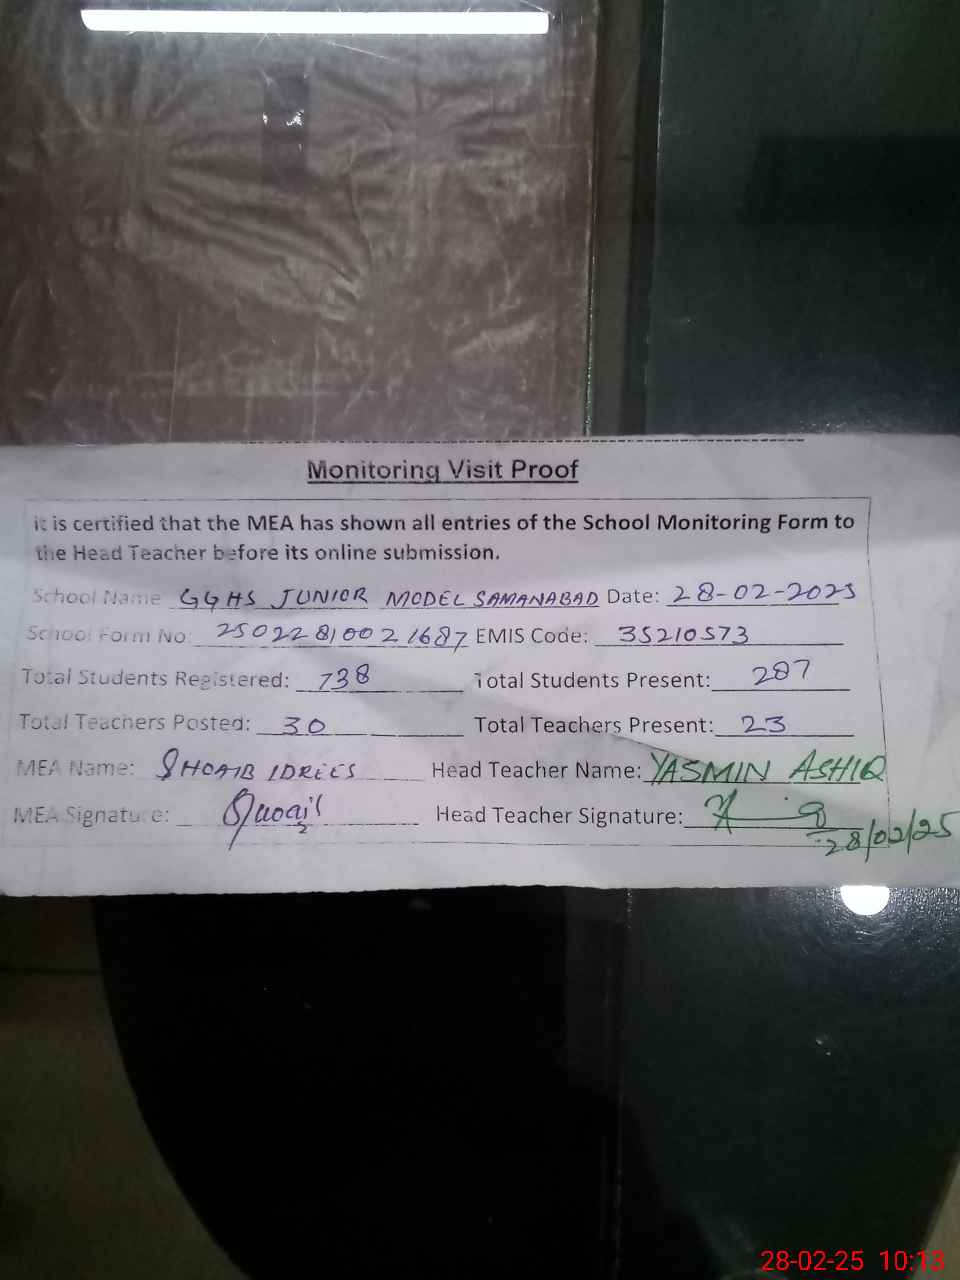 Monitoring Visit Proof
it is certified that the MEA has shown all entries of the School Monitoring Form to
the Head Teacher before its online submission.
School Name GGHS JUNIOR MODEL SAMANABAD Date: 28-02-2025
School Form No: 25022810021687 EMIS Code: 35210573
Total Students Registered: 738 Total Students Present: 287
Total Teachers Posted: 30 Total Teachers Present: 23
MEA Name: SHOAIB IDREES Head Teacher Name: YASMIN ASHIQ
MEA Signature: Shoaib Head Teacher Signature:
28/02/25
28-02-25 10:13